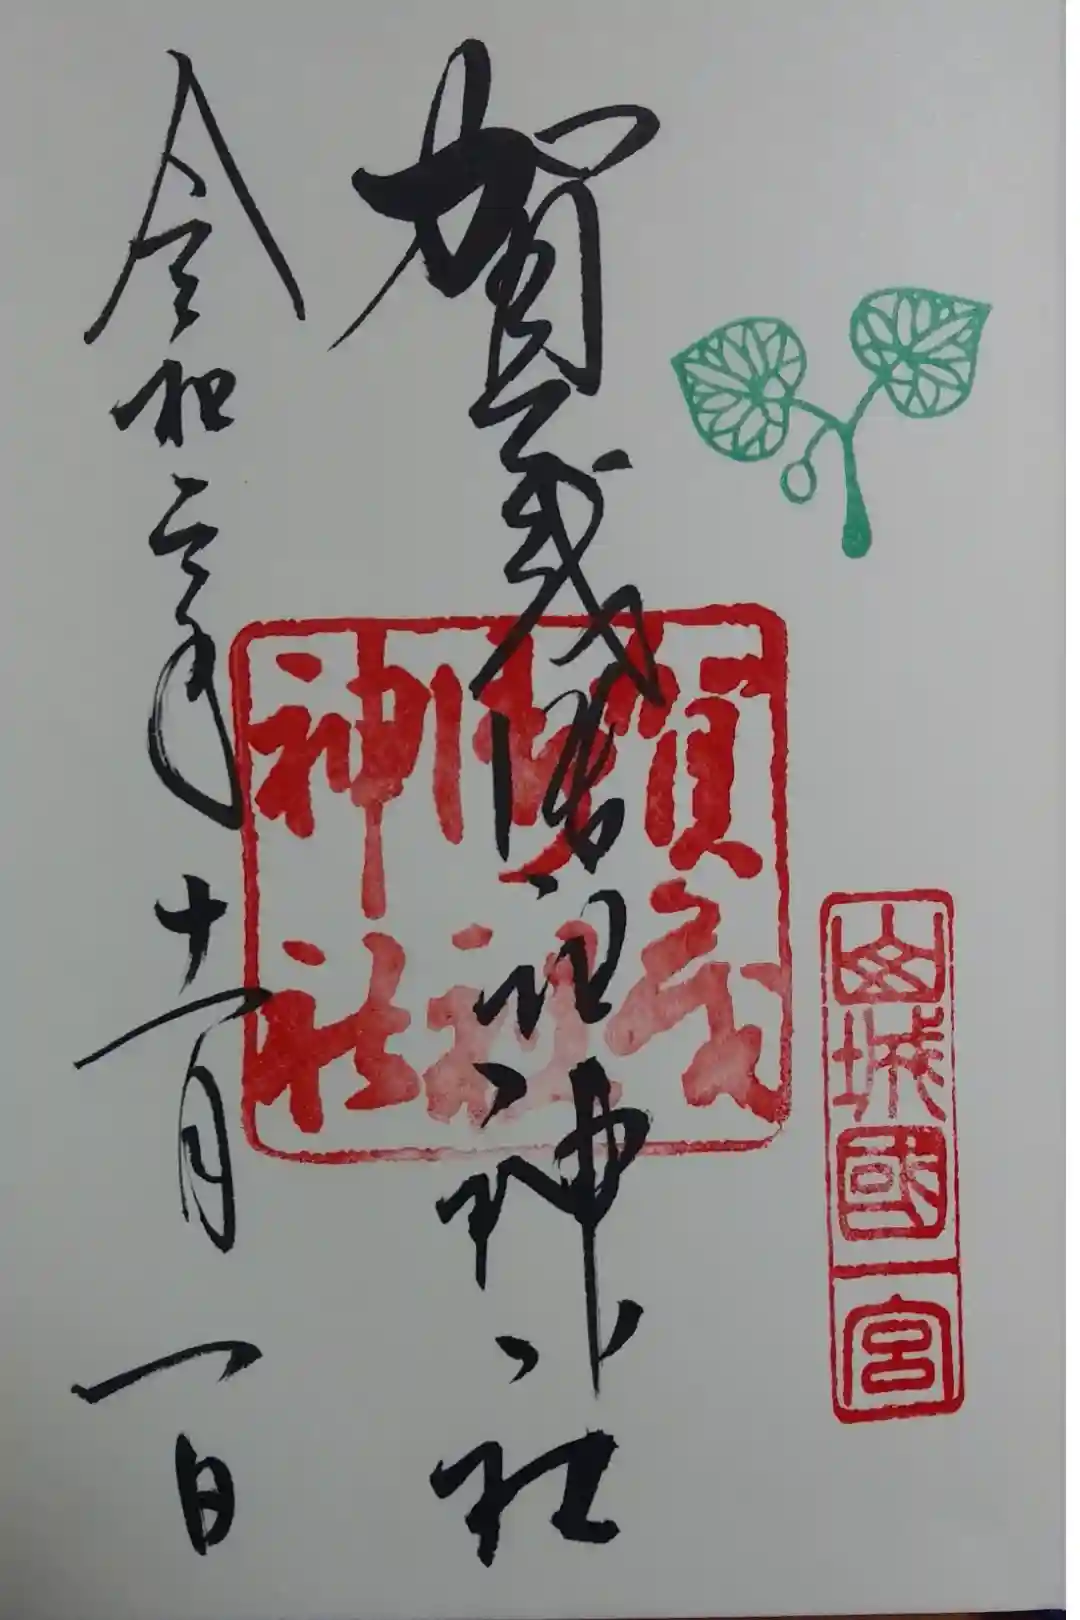 山城國一宮
賀茂御祖神社
賀茂御祖神社
令和二年十一月一日